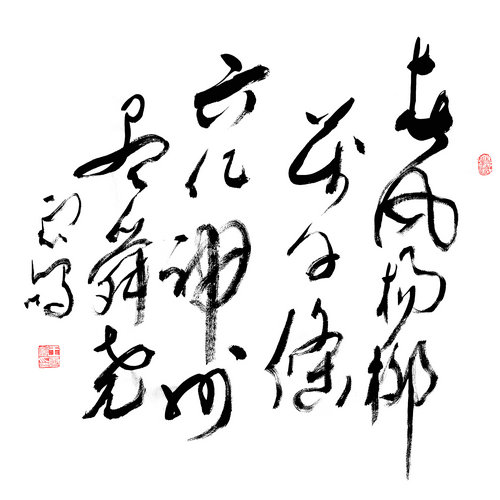 春风杨柳
万千條
六亿神州
尽舜尧